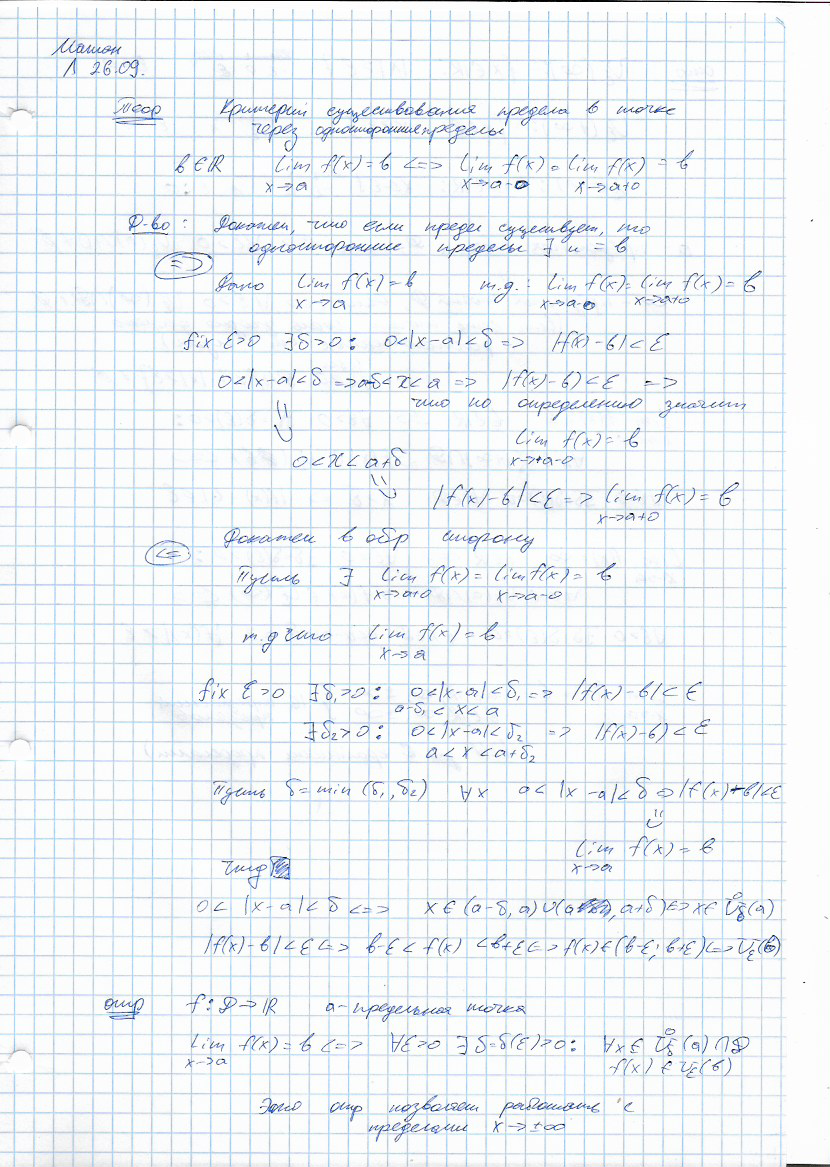 Матан
Л 26.09.
Теор Критерий существования предела в точке
через односторонние пределы
b ∈ ℝ lim f(x) = b <=> lim f(x) = lim f(x) = b
x->a x->a-0 x->a+0
Д-во: Докажем, что если предел существует, то
односторонние пределы ∃ и = b
=>
Дано lim f(x) = b т.д.: lim f(x) = lim f(x) = b
x->a x->a-0 x->a+0
fix ε>0 ∃δ>0: 0<|x-a|<δ => |f(x)-b|<ε
0<|x-a|<δ => a-δ<x<a => |f(x)-b|<ε =>
что по определению значит
lim f(x) = b
x->a-0
0<x<a+δ
|f(x)-b|<ε => lim f(x) = b
x->a+0
<= Докажем в обр сторону
Пусть ∃ lim f(x) = lim f(x) = b
x->a+0 x->a-0
т.д что lim f(x) = b
x->a
fix ε>0 ∃δ₁>0: 0<|x-a|<δ₁ => |f(x)-b|<ε
a-δ₁<x<a
∃δ₂>0: 0<|x-a|<δ₂ => |f(x)-b|<ε
a<x<a+δ₂
Пусть δ = min (δ₁, δ₂) ∀x 0<|x-a|<δ => |f(x)-b|<ε
=>
lim f(x) = b
x->a
чтд
0<|x-a|<δ <=> x ∈ (a-δ, a) ∪ (a, a+δ) <=> x ∈ Ů_δ(a)
|f(x)-b|<ε <=> b-ε<f(x)<b+ε <=> f(x) ∈ (b-ε; b+ε) <=> U_ε(b)
опр f: D -> ℝ a - предельная точка
lim f(x) = b <=> ∀ε>0 ∃δ=δ(ε)>0: ∀x ∈ Ů_δ(a) ∩ D
x->a f(x) ∈ U_ε(b)
Это опр позволяет работать с
пределами x -> ±∞